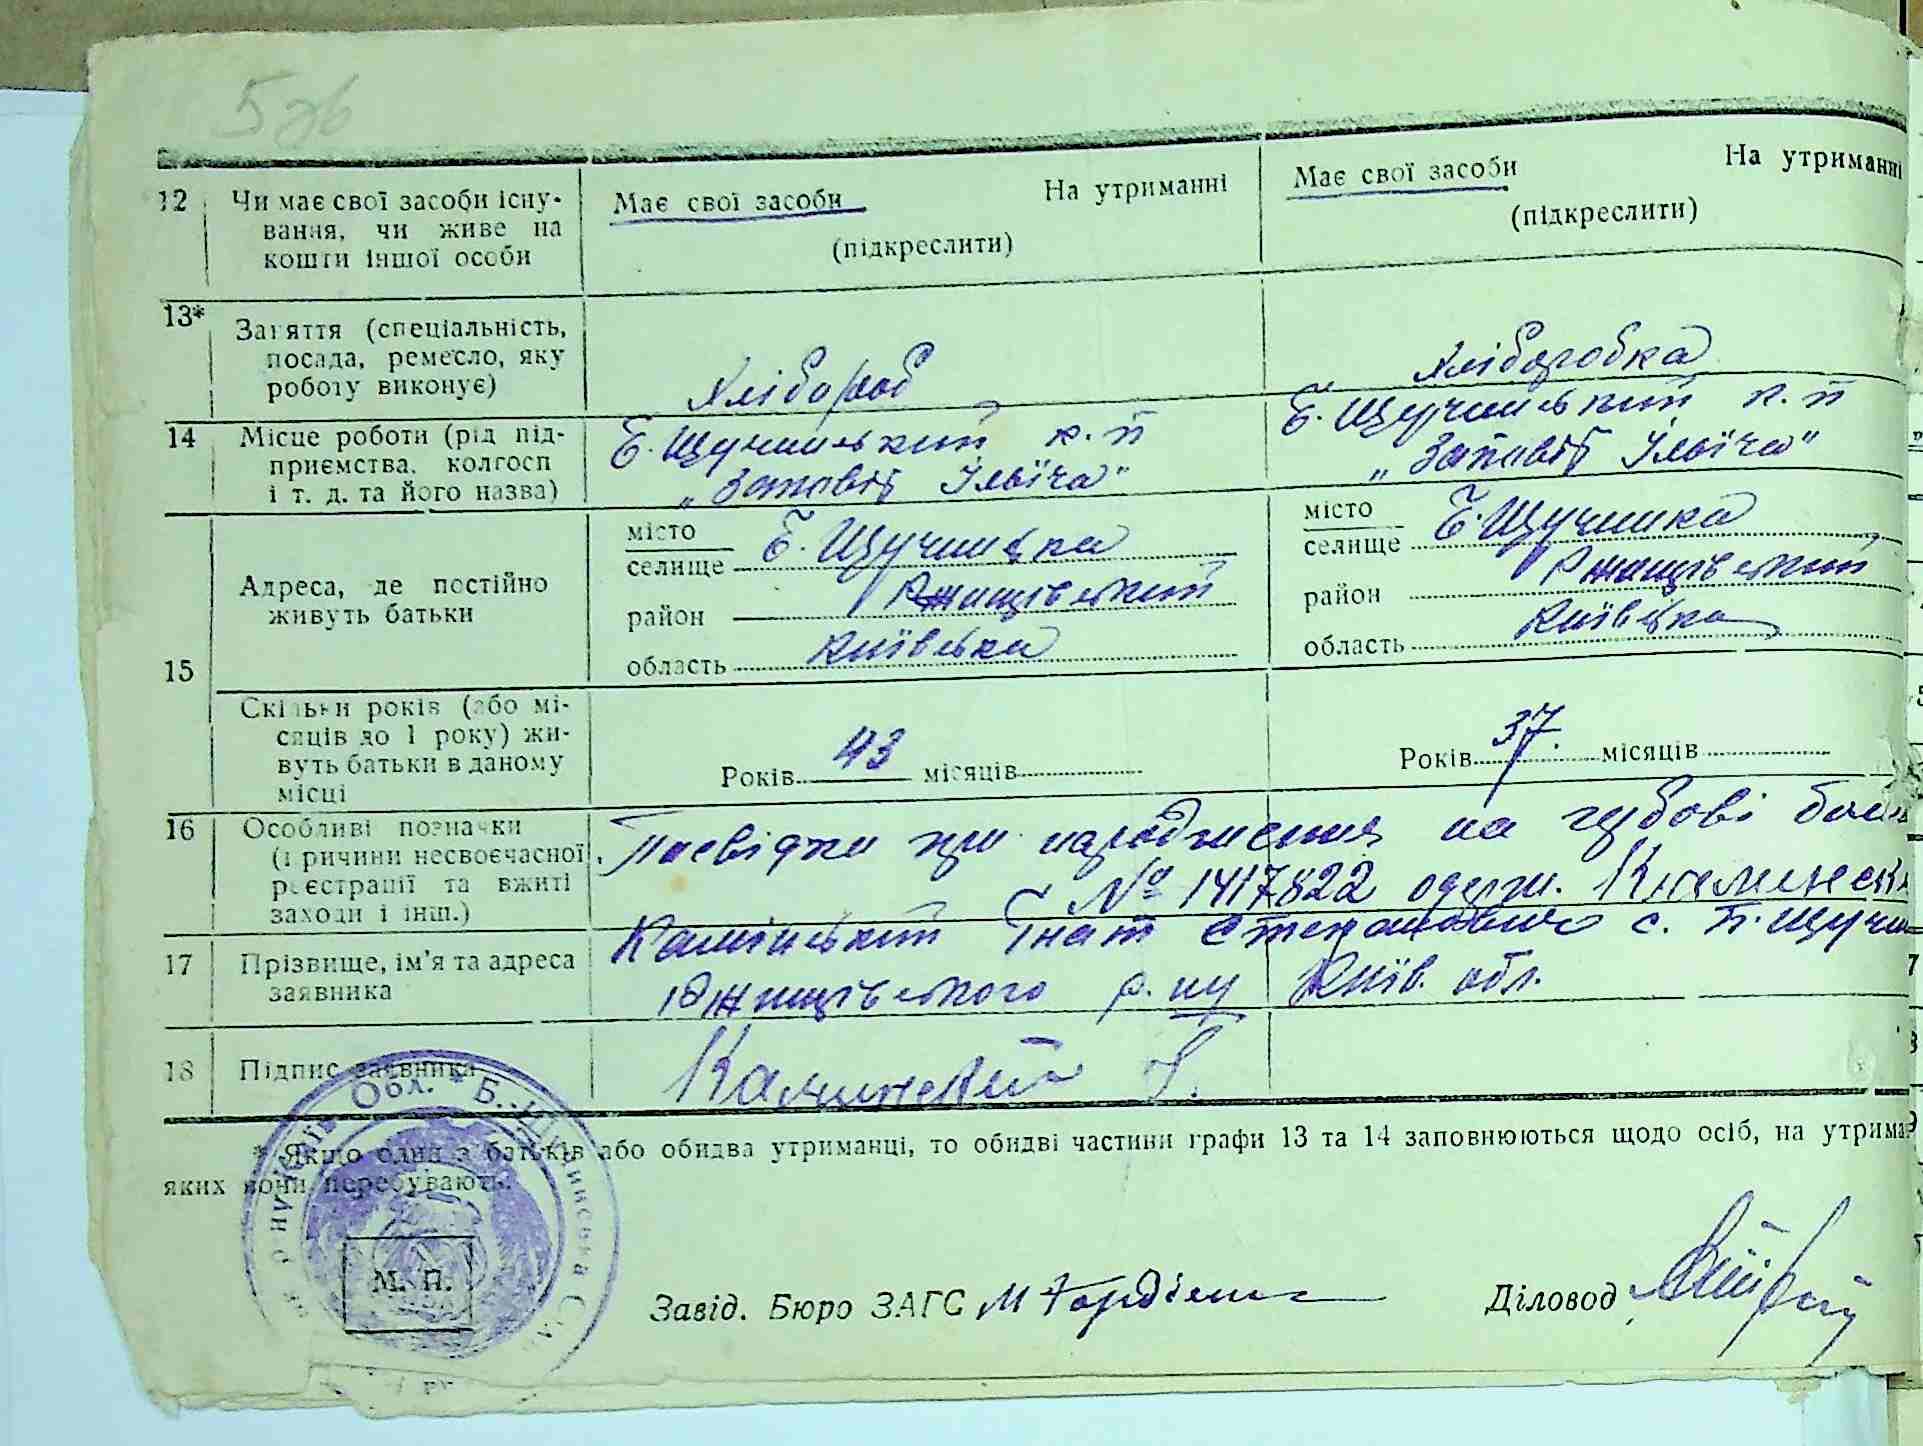 5 зв
12 Чи має свої засоби існу- Має свої засоби На утриманні Має свої засоби На утриманні
вання, чи живе на (підкреслити) (підкреслити)
кошти іншої особи
13* Заняття (спеціальність,
посада, ремесло, яку
роботу виконує) Хлібороб Хліборобка
14 Місце роботи (рід під- Б. Щучинський к.п Б. Щучинський к.п
приємства, колгосп „Заповіт Ілліча" „Заповіт Ілліча"
і т. д. та його назва)
15 Адреса, де постійно
живуть батьки
місто
селище Б. Щучинка
район Ржищівський
область Київська
місто
селище Б. Щучинка
район Ржищівський
область Київська
Скільки років (або мі-
сяців до 1 року) жи-
вуть батьки в даному
місці
Років 43 місяців Років 37 місяців
16 Особливі позначки
(причини несвоєчасної
реєстрації та вжиті
заходи і інш.)
Посвідки про народження на
№ 1417822 одерж.
17 Прізвище, ім'я та адреса
заявника
Камінський Гнат Степанович с. Б. Щучи
Ржищівського р.ну Київ. обл.
18 Підпис заявника Каминский Г.
* Якщо один з батьків або обидва утриманці, то обидві частини графи 13 та 14 заповнюються щодо осіб, на утрима
яких вони перебувають.
Обл. * Б.-Щ
М. П.
Завід. Бюро ЗАГС М Гордієнко Діловод